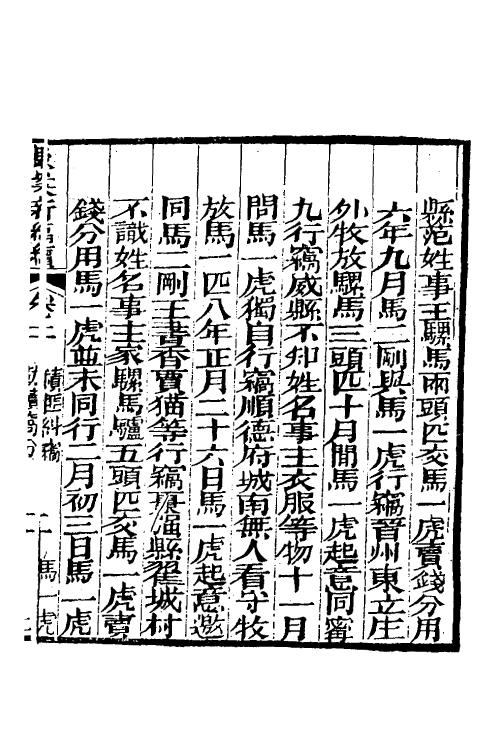 縣范姓事主騾馬兩頭匹交馬一虎賣錢分用
六年九月馬二剛與馬一虎行竊晉州東立庄
外牧放騾馬三頭匹十月間馬一虎起意同甯
九行竊威縣不知姓名事主衣服等物十一月
間馬一虎獨自行竊順德府城南無人看守牧
放馬一匹八年正月二十六日馬一虎起意邀
同馬二剛王書香賈猫等行竊縣翟城村
不識姓名事主家騾馬驢五頭匹交馬一虎賣
錢分用馬一虎並未同行二月初三日馬一虎
案新編續
卷二
積匪糾竊
馬一虎